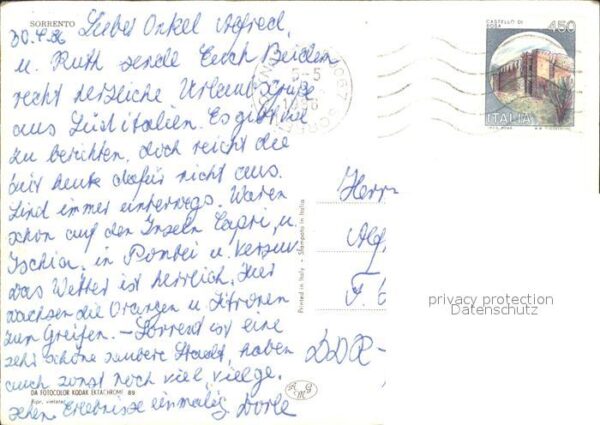 SORRENTO
30.4.86 Lieber Onkel Alfred,
u. Ruth sende Euch Beiden
recht herzliche Urlaubsgrüße
aus Süditalien. Es gibt viel
zu berichten, doch reicht die
heute dafür nicht aus.
Sind immer unterwegs. Waren
schon auf den Inseln Capri, u.
Ischia, in Pompei u. Vesuv
das Wetter ist herrlich. Hier
wachsen die Orangen u. Zitronen
zum Greifen. – Sorrent ist eine
sehr schöne saubere Stadt, haben
auch sonst noch viel, viel ge-
DA FOTOCOLOR KODAK EKTACHROME 89
Ripr. vietata
sehen. Erlebnisse einmalig Dorle
Printed in Italy - Stampato in Italia
CASTELLO DI
ROSA
450
ITALIA
5-5
Herrn
Alf
DDR-
privacy protection
Datenschutz